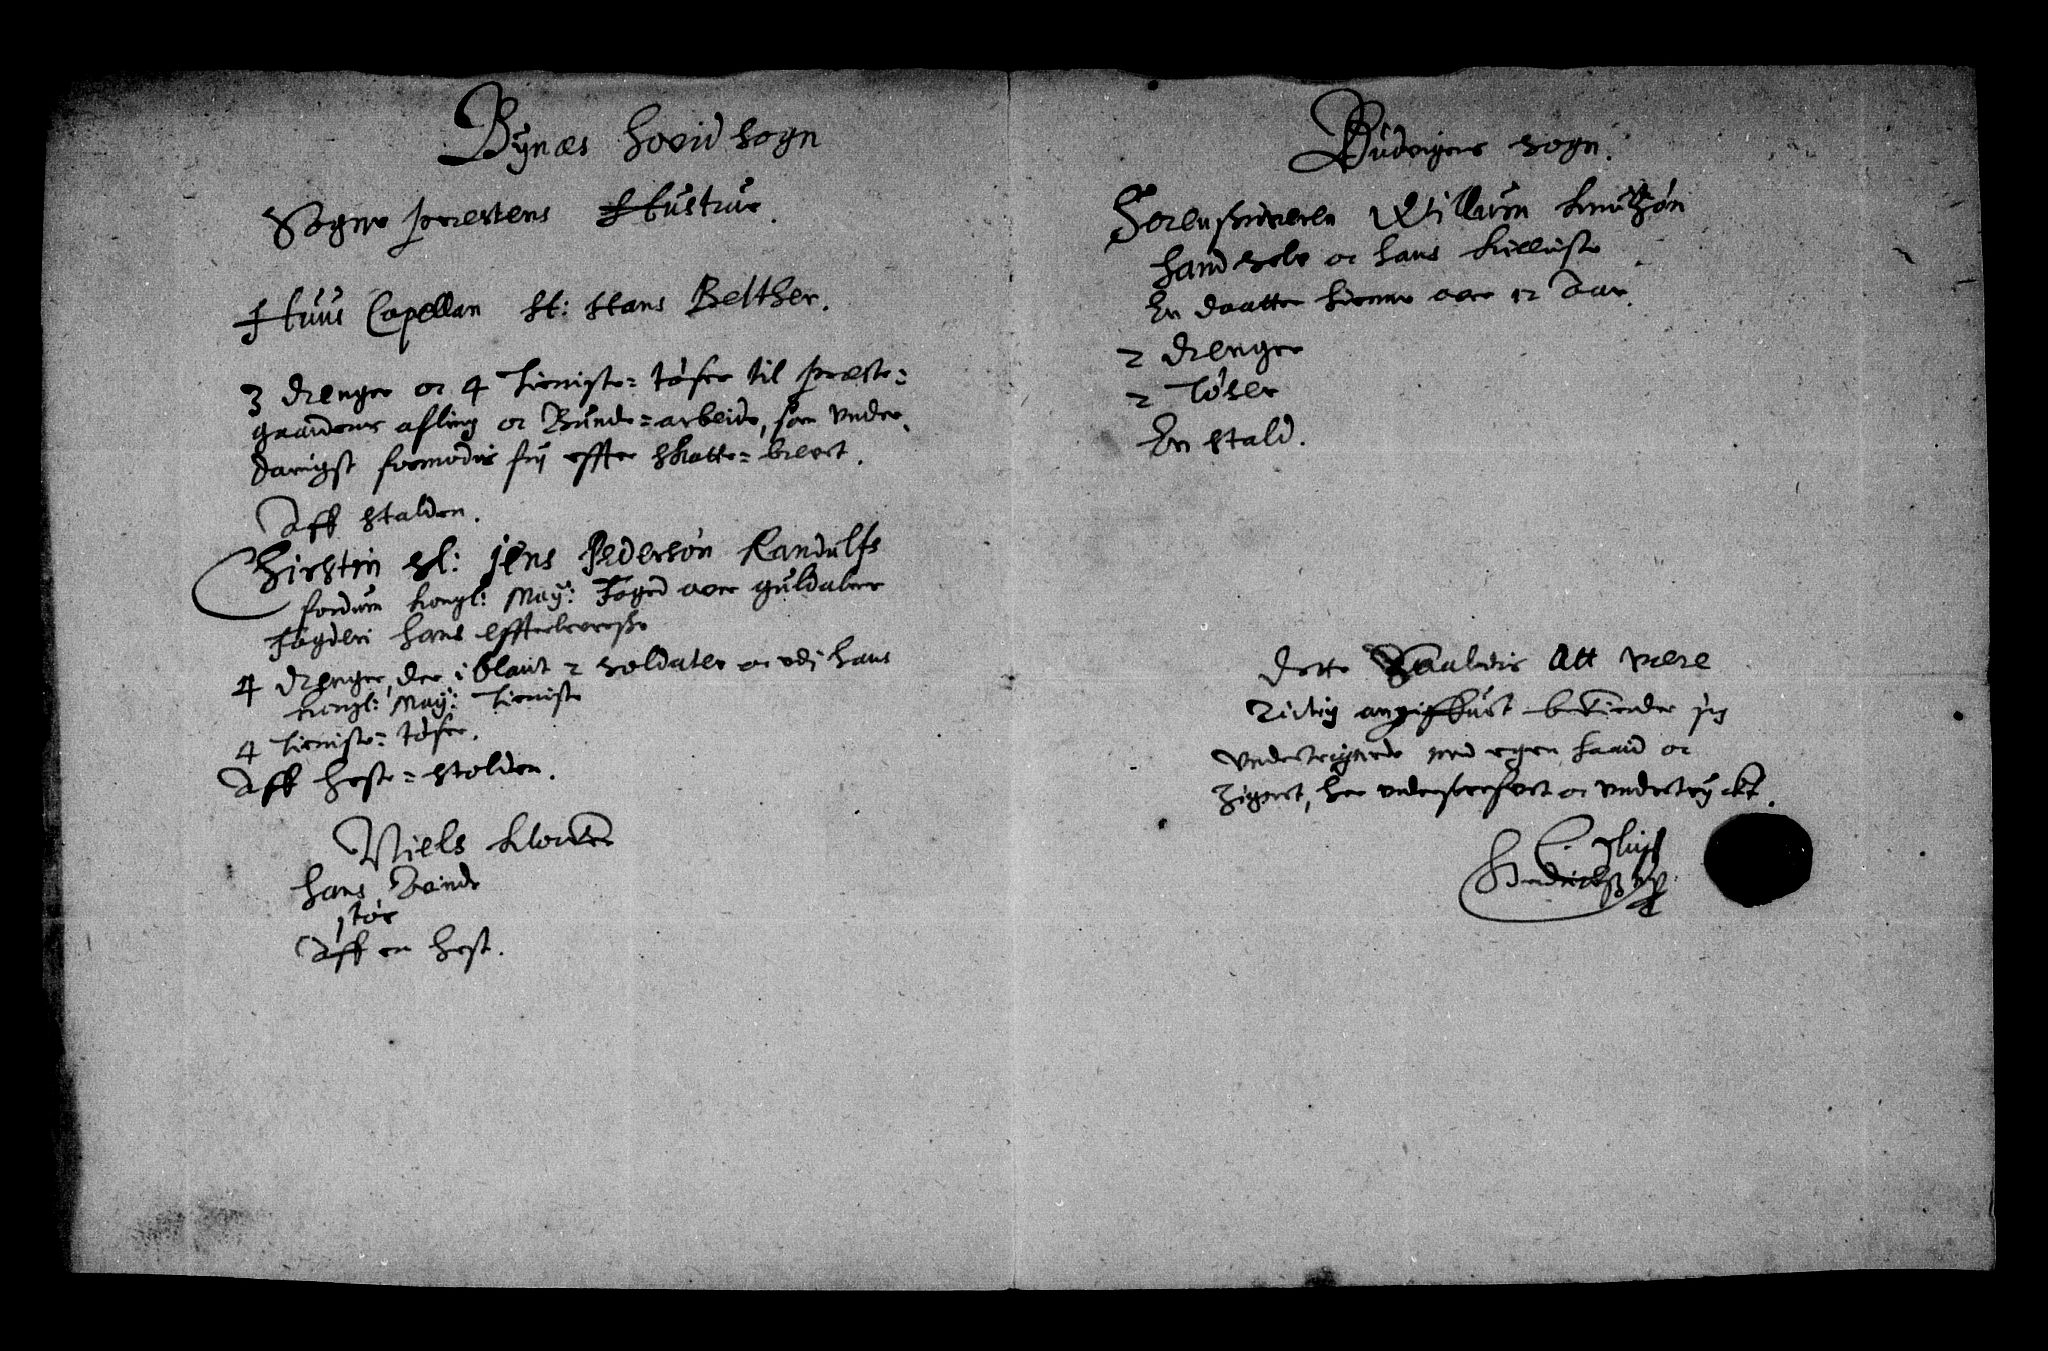 Bynæs hoeid sogn
Sogne præstens Hustrue.
Huus Capellan Hl: Hans Belther.
3 drenger oc 4 tieniste= tøser til præste=
gaardens afling oc Bunde=arbeide, som under
danigst formodis frij effter skatte= brevet.
Aff stalden.
Kirstin Sl: Jens Pedersøn Randulfs
fordum kongl: May: Foged over guldalens
Fogderi hans effterleverske
4 drenger, der iblant 2 soldater oc udj hans
kongl: May: tieniste
4 tieniste= tøser.
Aff heste= stolden.
Niels klocker
hans quinde
1 tøs
Aff en hest.
Budvigens sogn.
Sorenskriveren Willum knutzøn
hand selv oc hans kiereste
En daatter hiemme over 12 Aar.
2 drenger
2 tøser
En stald.
Dette saaledis Att være
rictig angiffvist bekiender jeg
understegnede med egen haand oc
Zignet, her underskrefvet oc undertryckt.
Hendrichß